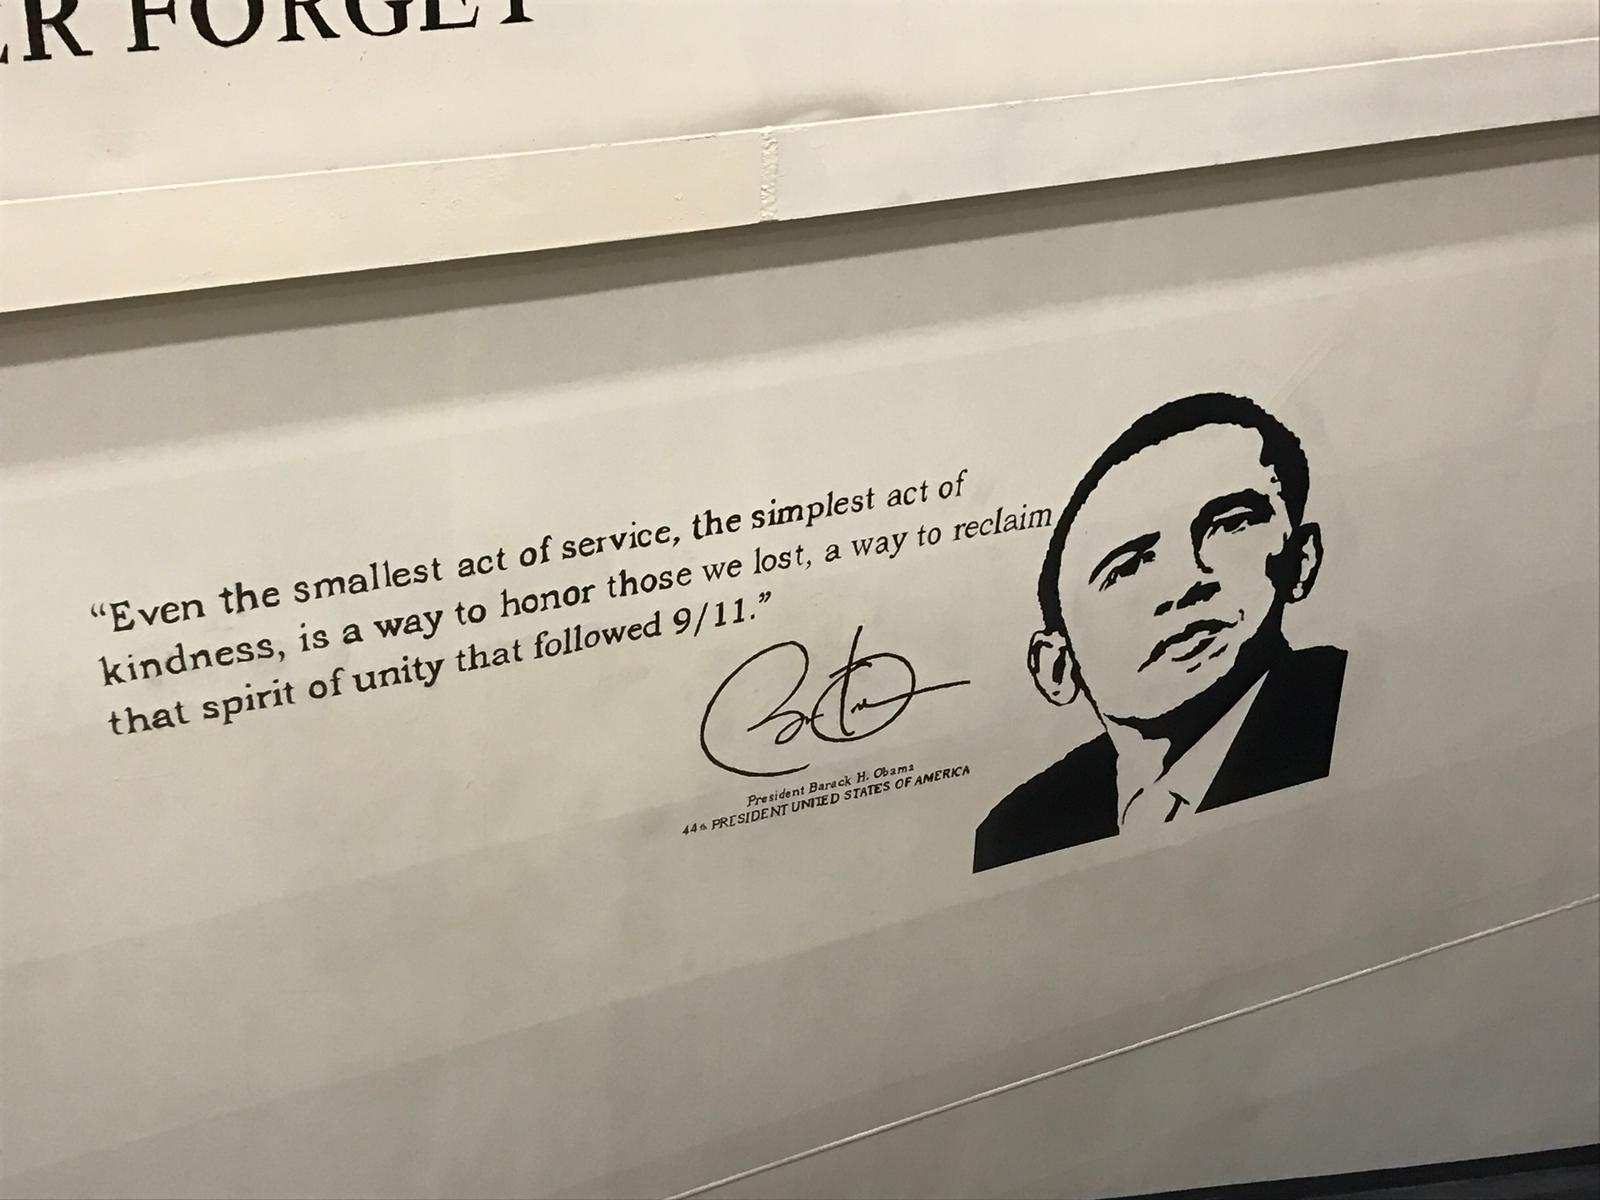 ER FORGET
“Even the smallest act of service, the simplest act of
kindness, is a way to honor those we lost, a way to reclaim
that spirit of unity that followed 9/11.”
President Barack H. Obama
44th PRESIDENT UNITED STATES OF AMERICA